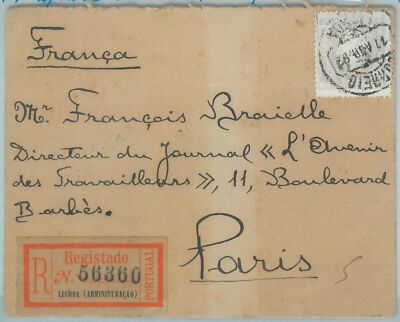 França
CORREIO
11 ABR. 92
Mr. François Braielle
Directeur du Journal « L'Avenir
des Travailleurs », 11, Boulevard
Barbès.
Paris
Registado
R N. 56360 PORTUGAL
LISBOA (ADMINISTRAÇÃO)
5